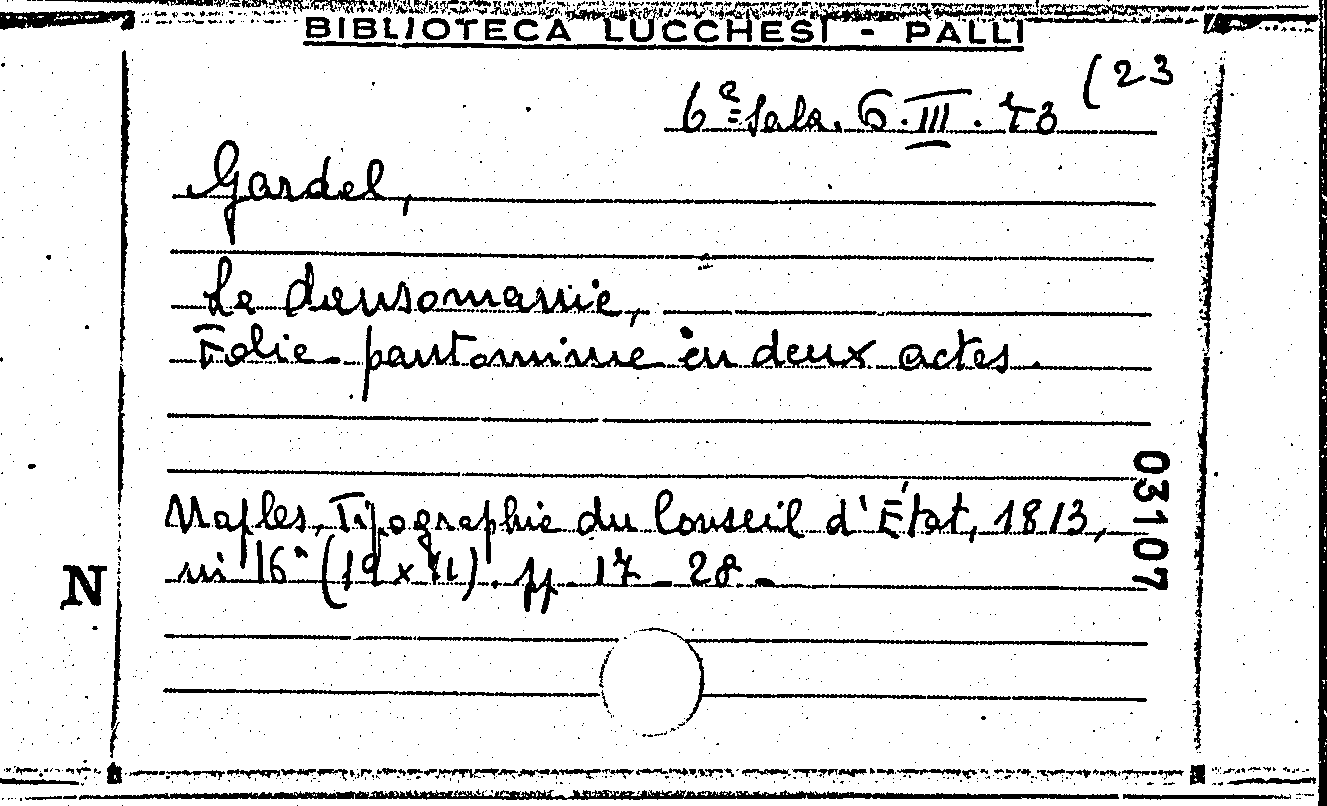 BIBLIOTECA LUCCHESI - PALLI
(23
6ª Sala. 6. III. 73
Gardel,
La dansomanie,
Folie-pantomime en deux actes.
Naples, Tipographie du Conseil d'État, 1813,
in 16° (19 x 11). pp. 17-28.
03107
N